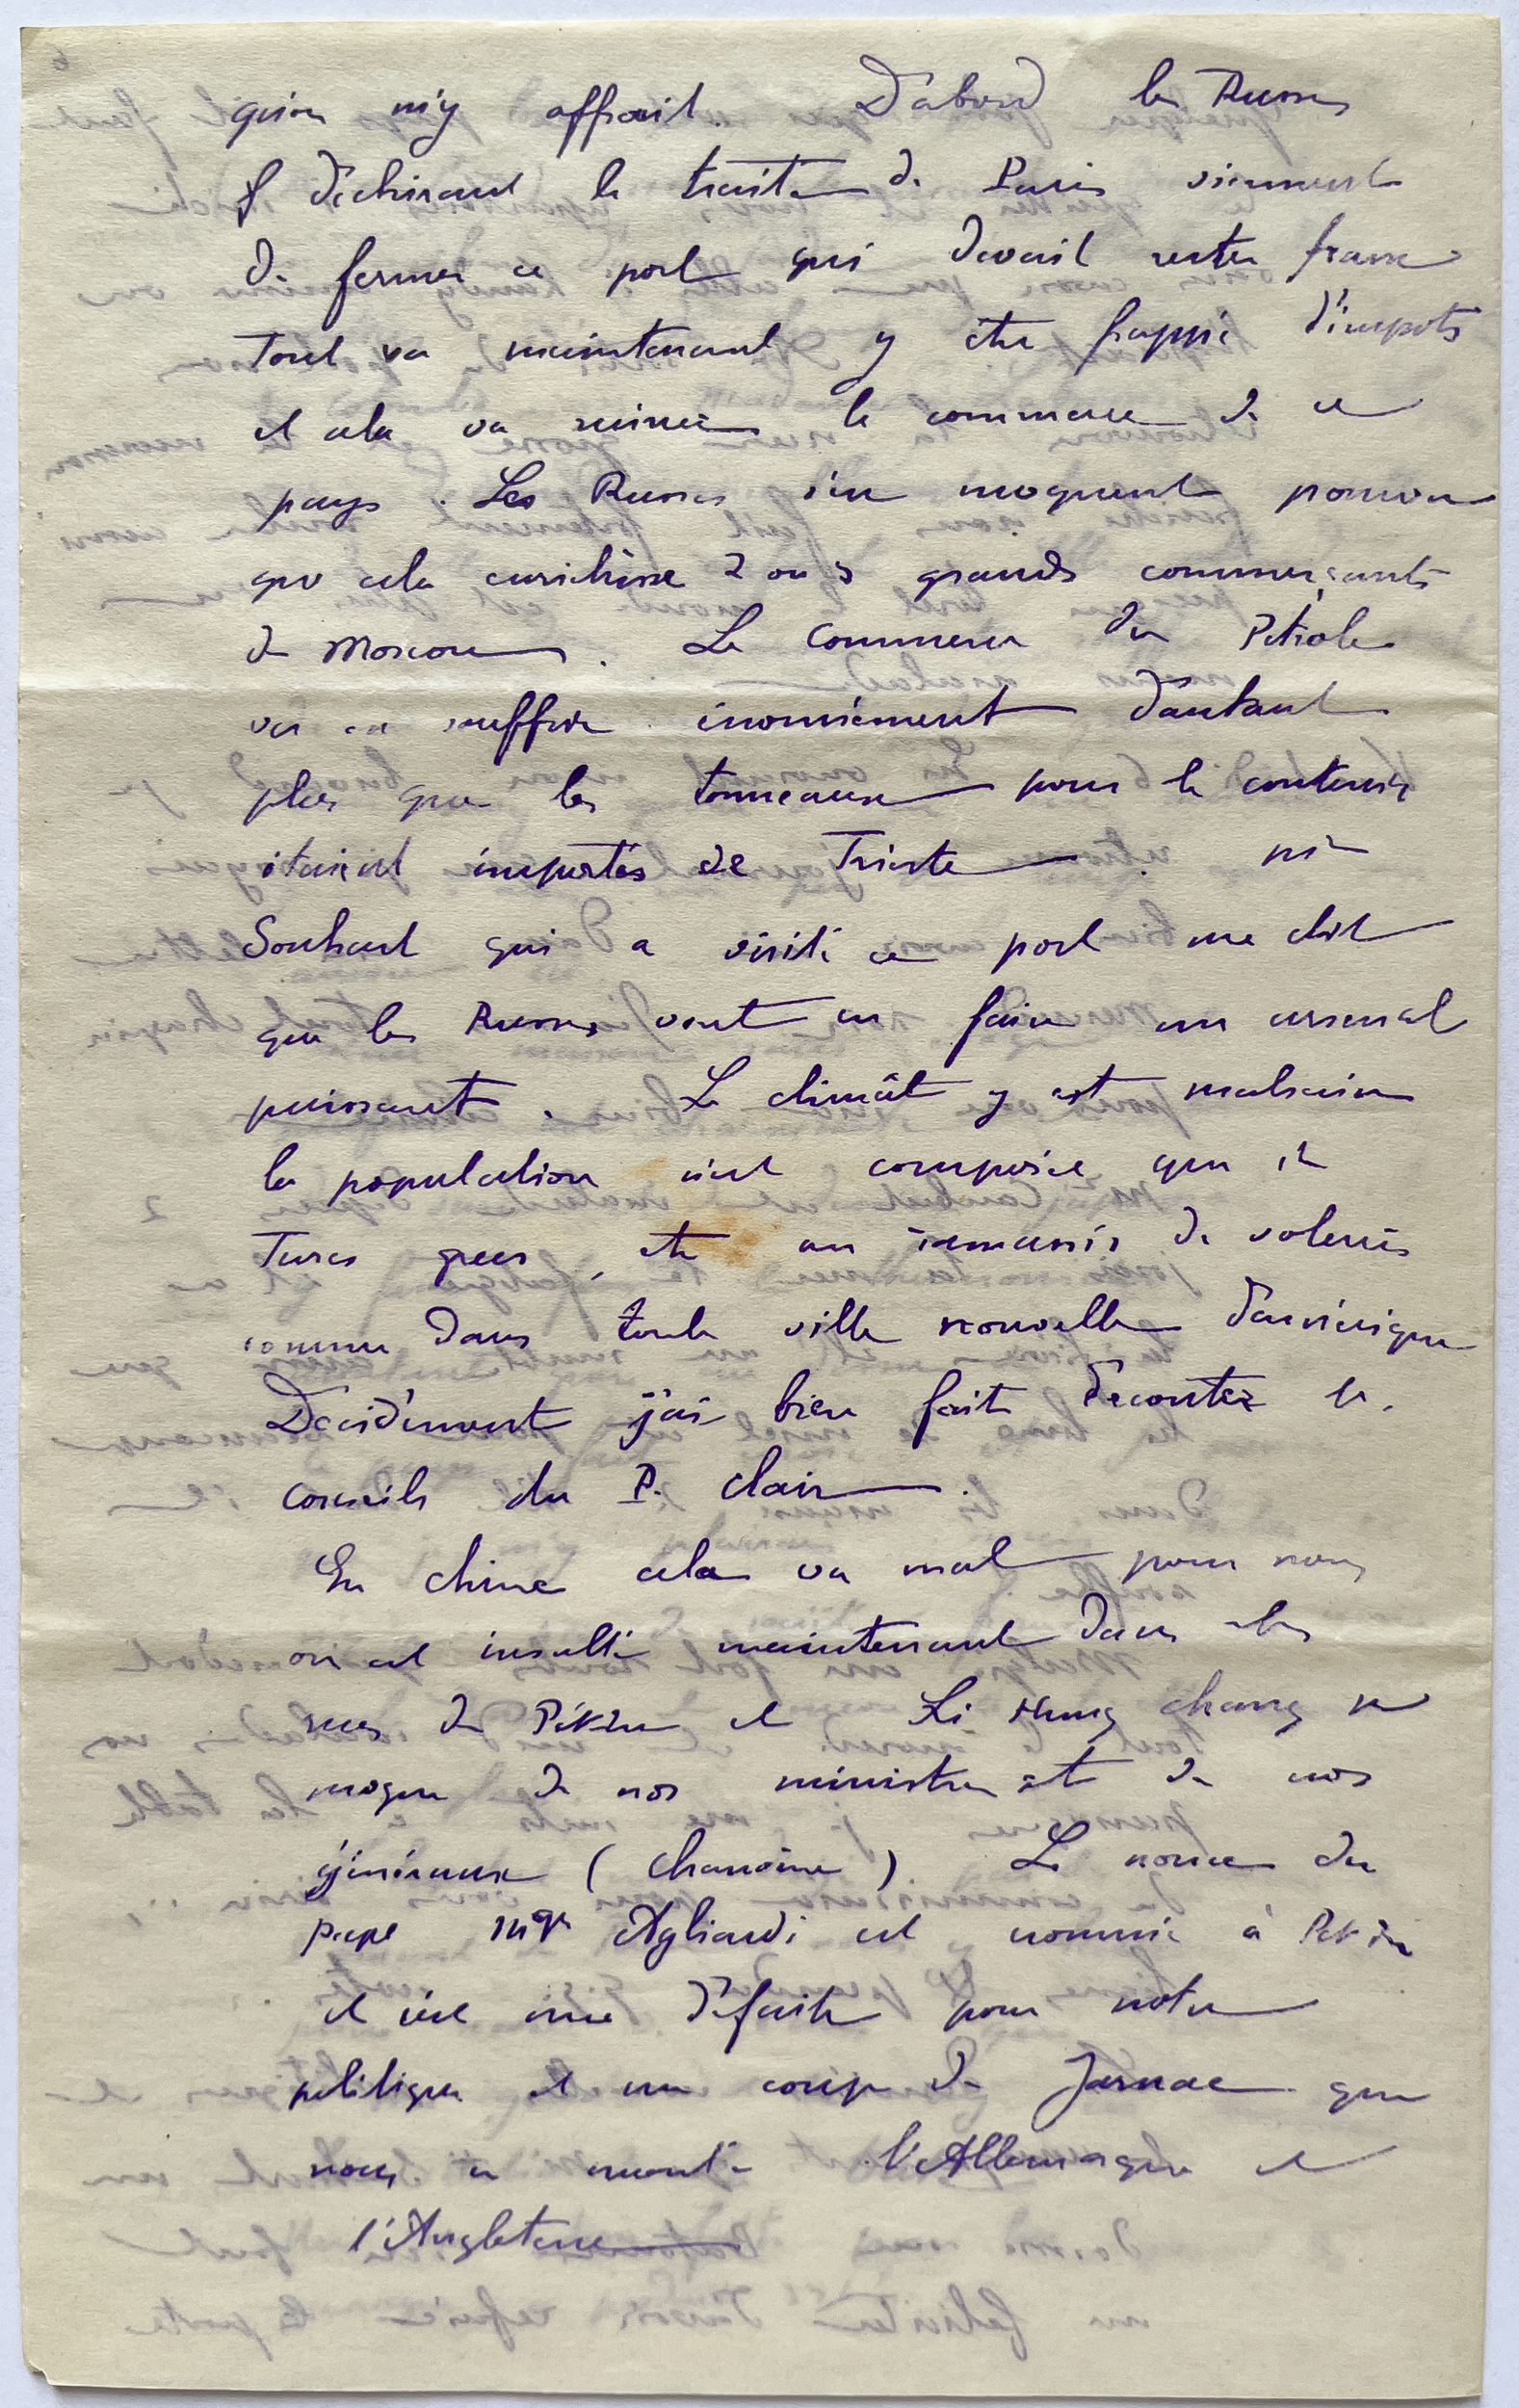 qu'on m'y offrait. D'abord les Russes
déchirant le traité de Paris viennent
de fermer ce port qui devait rester franc
Tout va maintenant y être frappé d'impots
et cela va ruiner le commerce de ce
pays. Les Russes s'en moquent pourvu
que cela enrichisse 2 ou 3 grands commerçants
de Moscou. Le commerce du Pétrole
va en souffrir énormément d'autant
plus que les tonneaux pour le contenir
étaient importés de Trieste. Mr
Souhart qui a visité ce port me dit
que les Russes vont en faire un arsenal
puissant. Le climât y est malsain
la population n'est composée que de
Turcs grecs, etc un ramassis de voleurs
comme dans toute ville nouvelle d'amérique
Décidément j'ai bien fait d'ecouter les
conseils du P. Clair.
En chine cela va mal pour nous
on est insulté maintenant dans les
rues de Pékin et Li Hung chang se
moque de nos ministres et de nos
généraux (Chanoine) Le nonce du
pape Mgr Agliardi est nommé à Pekin
et c'est une défaite pour notre
politique et un coup de Jarnac que
nous a monté l'Allemagne et
l'Angleterre